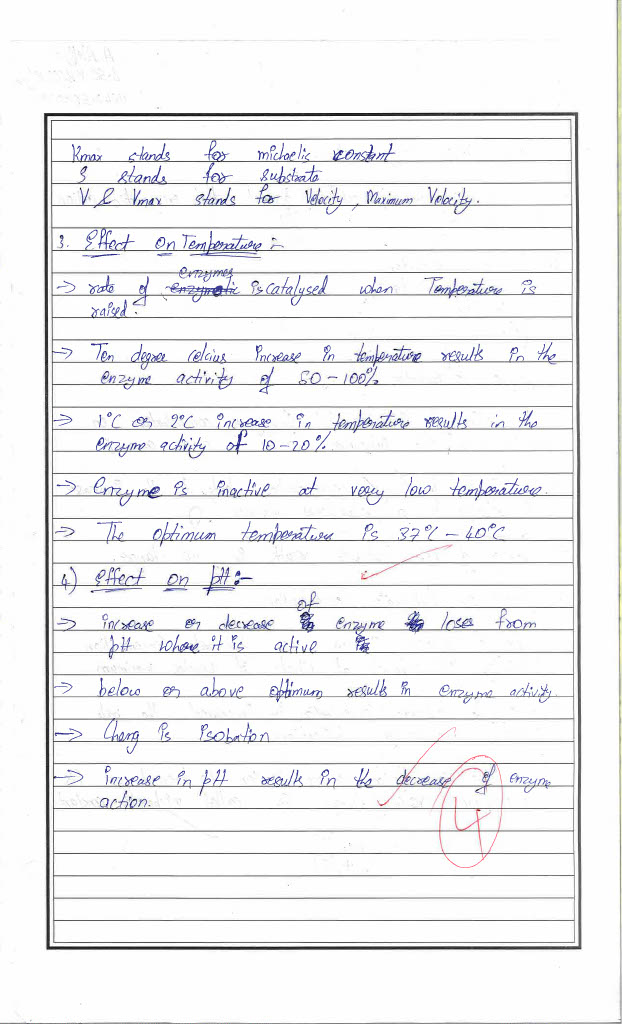 Kmax stands for michaelis constant
S stands for substrate
V & Vmax stands for Velocity, Maximum Velocity.
3. Effect on Temperature :-
enzymes
→ rate of enzymatic is catalysed when Temperature is
raised.
→ Ten degree celcius increase in temperature results in the
enzyme activity of 50-100%
→ 1°C or 2°C increase in temperature results in the
enzyme activity of 10-20%.
→ Enzyme is inactive at very low temperature.
→ The optimum temperature is 37°C - 40°C
4) Effect on pH :-
of
→ increase or decrease enzyme loses from
pH where it is active
→ below or above optimum results in enzyme activity.
→ Chang is isobation
→ increase in pH results in the decrease of enzyme
action.
4